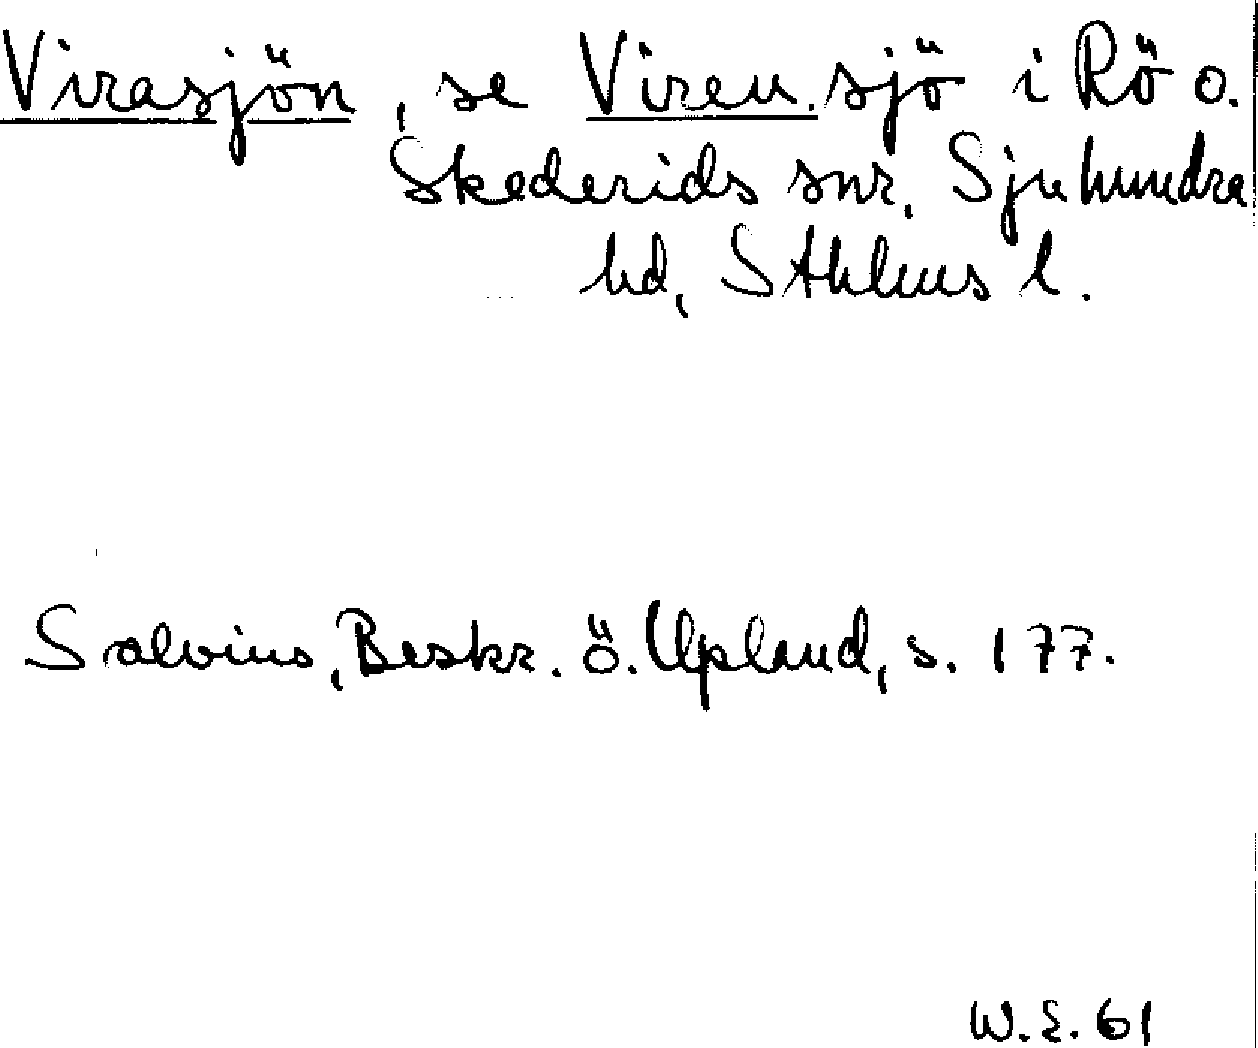 Virasjön, se Viren, sjö i Rö o.
Skederids snr, Sjuhundra
hd, Sthlms l.
Salvius, Beskr. ö. Upland, s. 177.
W.E. 61